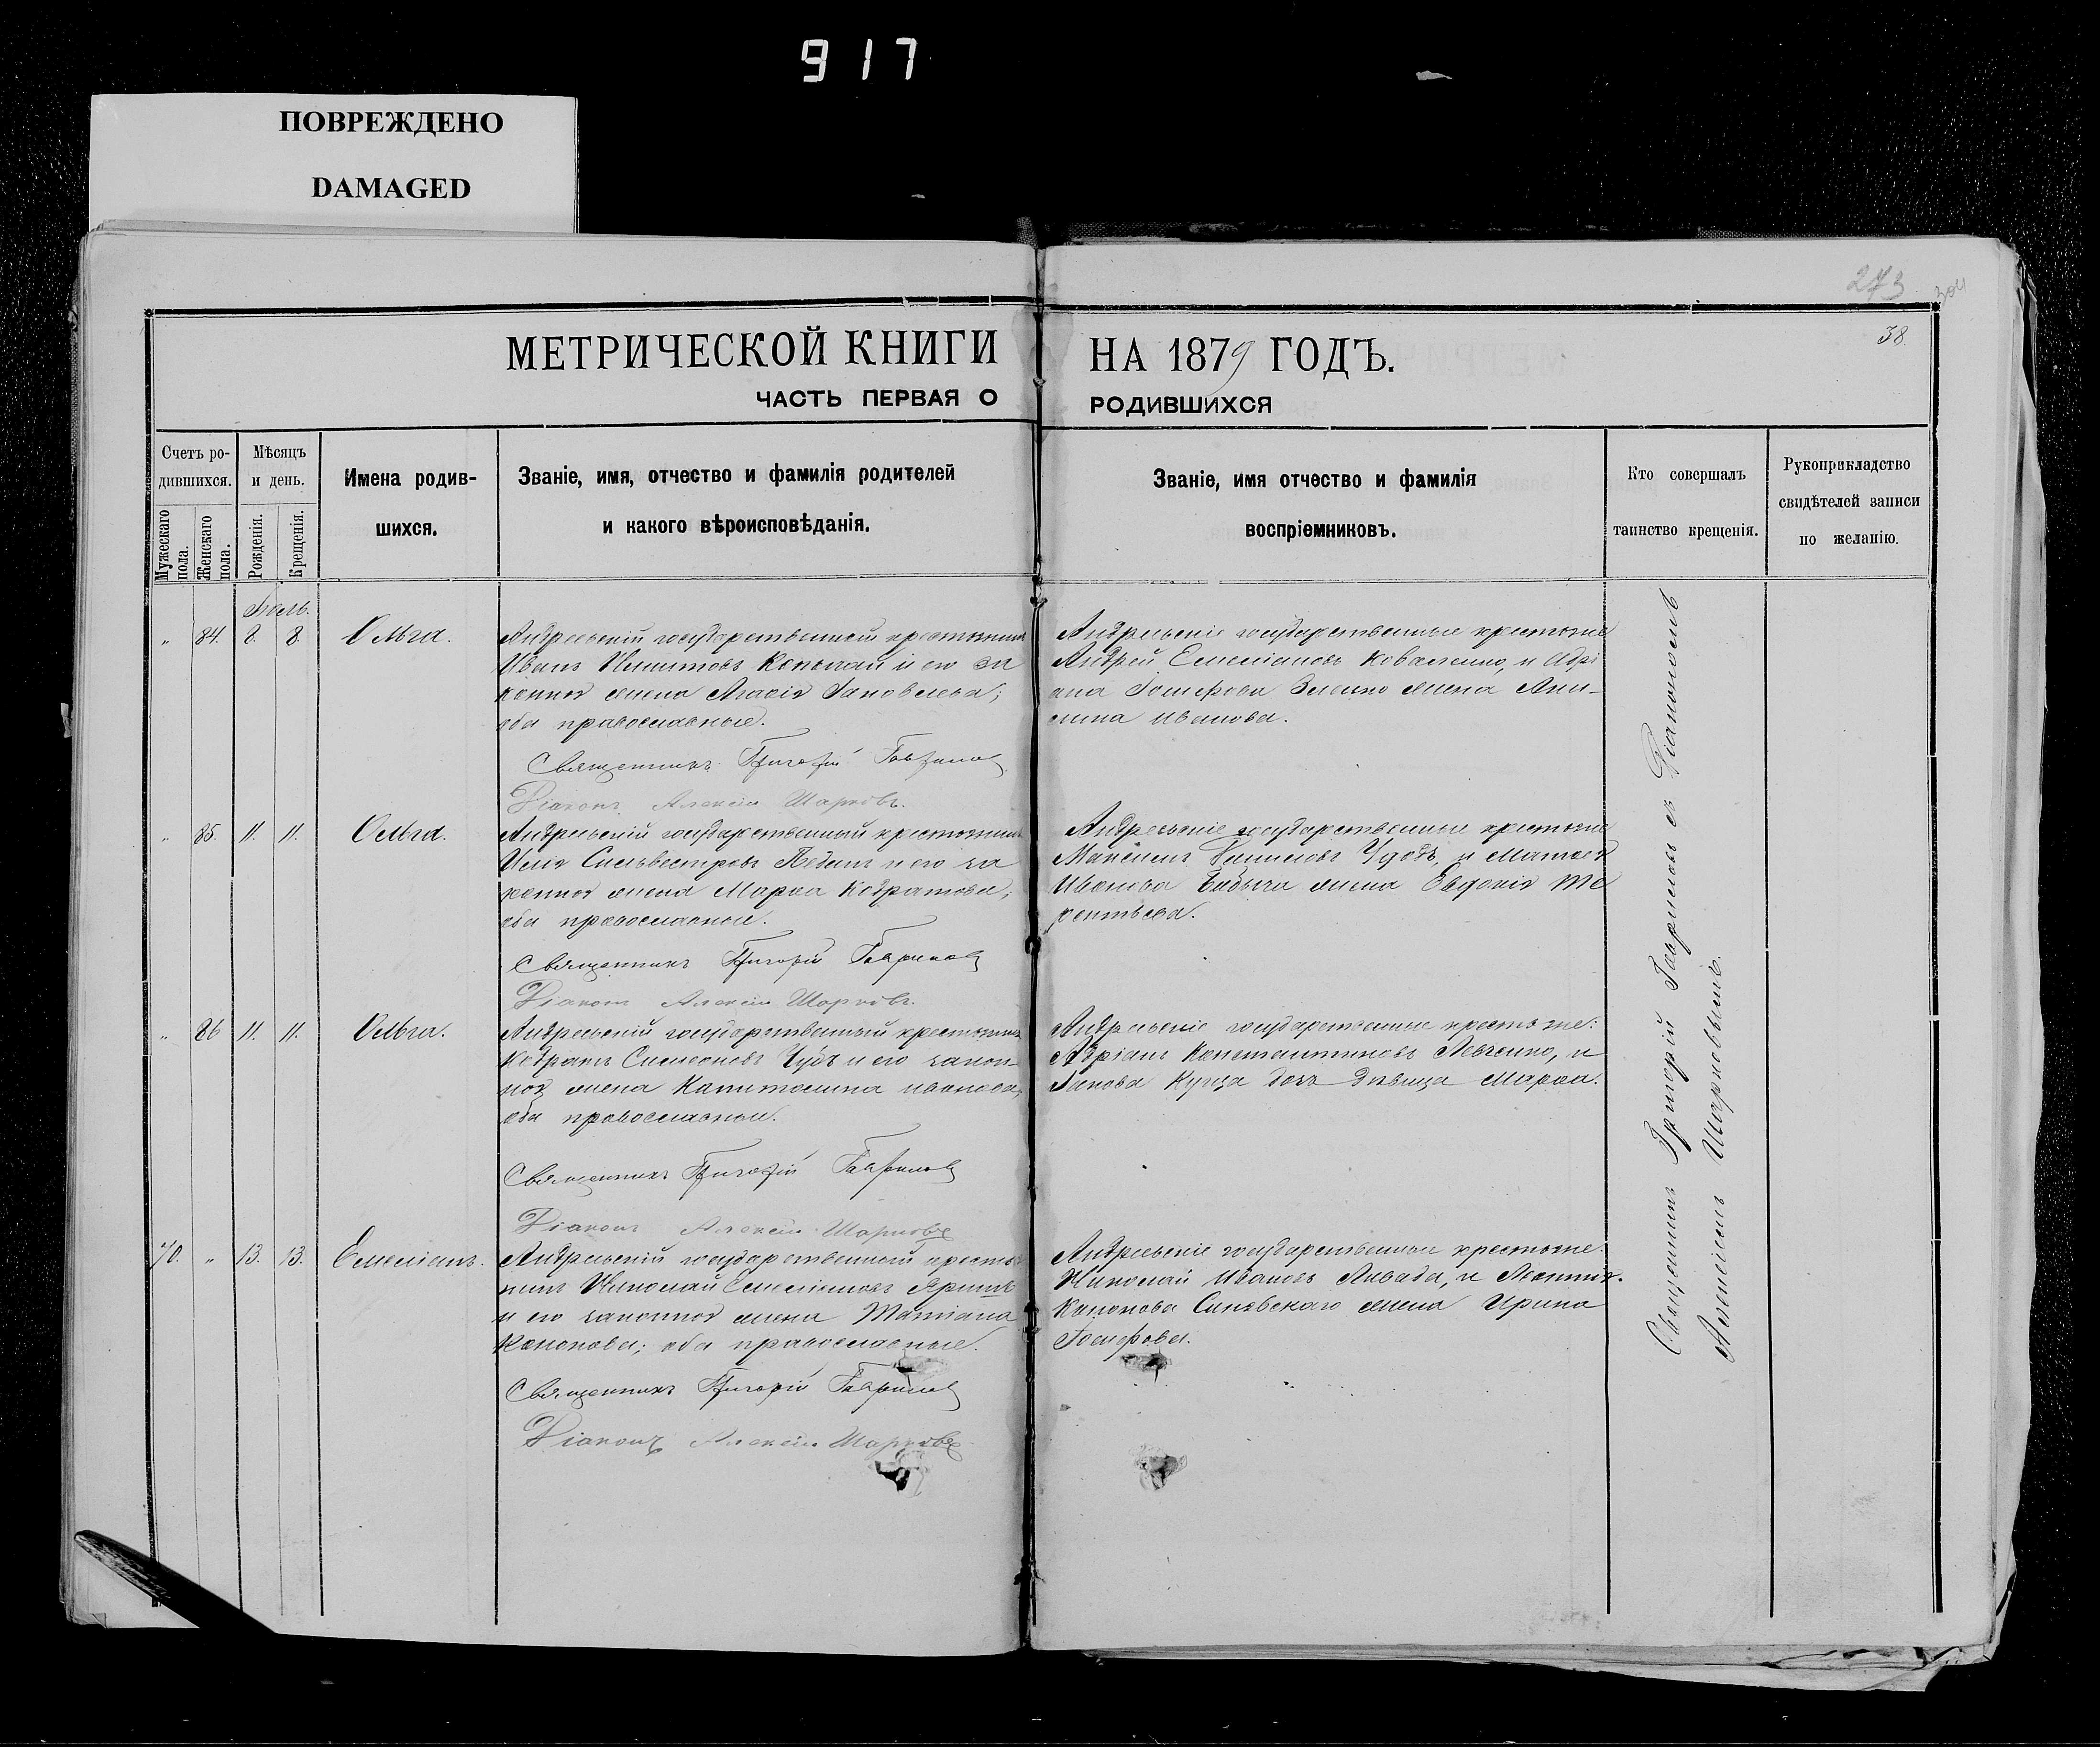 917
ПОВРЕЖДЕНО
DAMAGED
273
38.
МЕТРИЧЕСКОЙ КНИГИ НА 1879 ГОДЪ.
ЧАСТЬ ПЕРВАЯ О РОДИВШИХСЯ
Счетъ ро-
дившихся.
Мужескаго пола.
Женскаго пола.
Мѣсяцъ
и день.
Рожденія.
Крещенія.
Имена родив-
шихся.
Званіе, имя, отчество и фамилія родителей
и какого вѣроисповѣданія.
Званіе, имя отчество и фамилія
воспріемниковъ.
Кто совершалъ
таинство крещенія.
Рукоприкладство
свидѣтелей записи
по желанію.
Іюль.
„ 84. 8. 8. Ольга.
Андреевскій государственный крестьянинъ
Иванъ и его за
конная жена Агафія Іаковлева;
оба православные.
Священникъ Григорій Гаврилов
Діаконъ Алексій Шарковъ.
Андреевскіе государственные крестьяне
Андрей Емеліановъ Коваленко, и Адрі
ана Іосифова жена Аки-
лина Иванова.
„ 85. 11. 11. Ольга.
Андреевскій государственный крестьянинъ
Илія Сильвестровъ и его за
конная жена Марѳа Кодратова,
оба православные.
Священникъ Григорій Гаврилов
Діаконъ Алексій Шарковъ.
Андреевскіе государственные крестьяне
Максимъ Удодъ, и Матѳея
Иванова жена Евдокія Те
рентьева.
„ 86 11. 11. Ольга.
Андреевскій государственный крестьянинъ
Кодратъ Симеоновъ Чубъ и его закон-
ная жена Капитолина Иванова,
оба православные.
Священникъ Григорій Гаврилов
Діаконъ Алексій Шарковъ
Андреевскіе государственные крестьяне:
Адріанъ Константиновъ Левченко, и
Іакова Куща дочь дѣвица Марѳа.
70. „ 13. 13. Емеліанъ.
Андреевскій государственный крестья
нинъ Николай Емеліановъ
и его законная жена Татіана
Кононова; оба православные.
Священникъ Григорій Гаврилов
Діаконъ Алексій Шарковъ
Андреевскіе государственные крестьяне.
Николай Ивановъ Ливада, и
Кононова Синявскаго жена Ирина
Іосифова.
Священникъ Григорій Гавриловъ съ Діакономъ
Алексіемъ Шарковымъ.